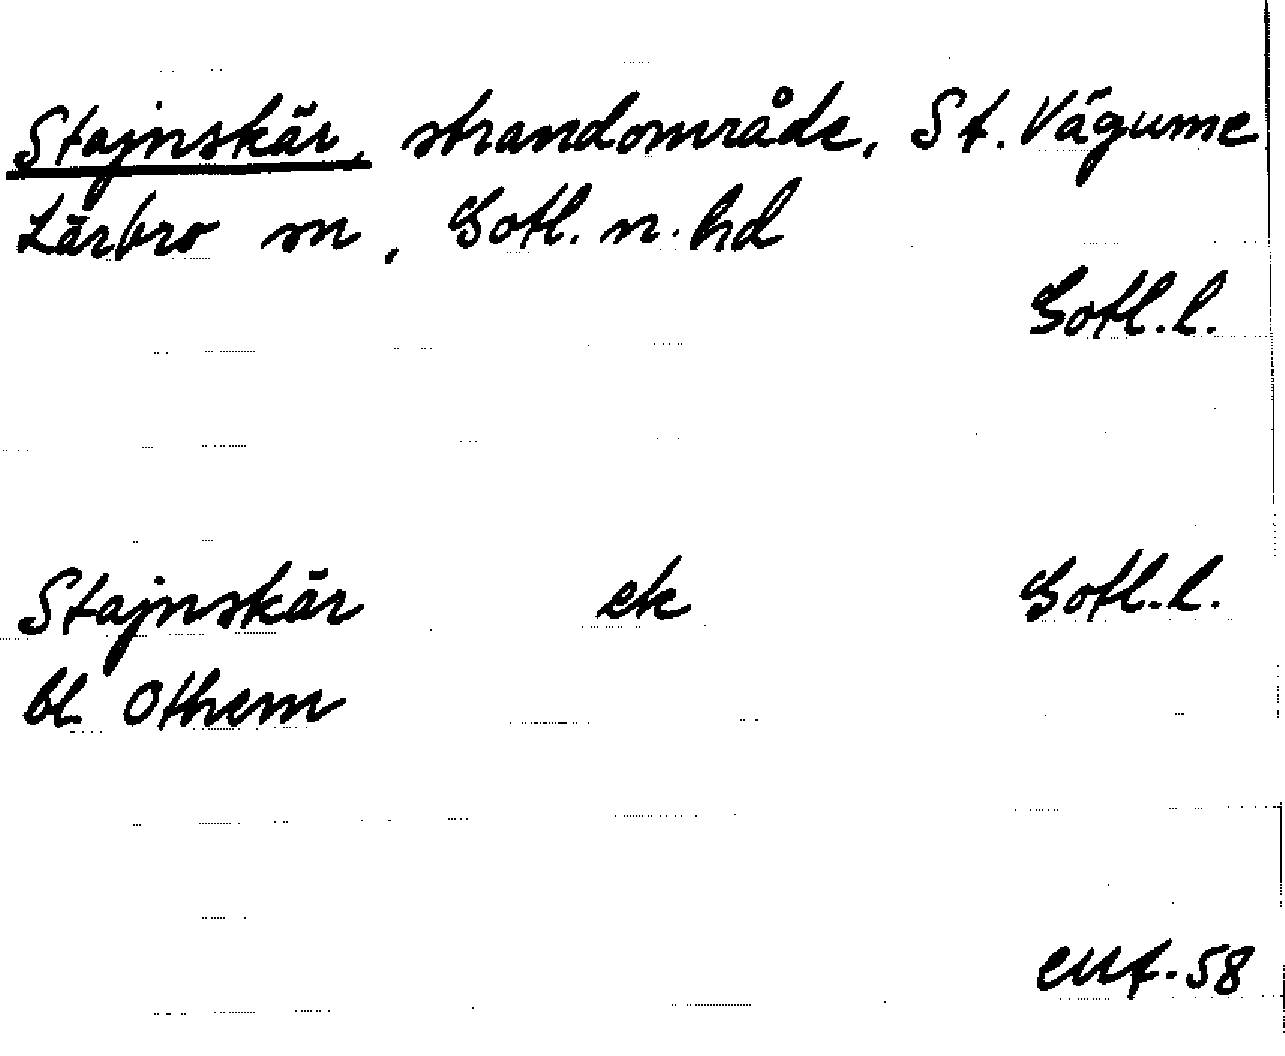 Stajnskär, strandområde, St. Vägume
Lärbro sn, Gotl. n. hd
Gotl. l.
Stajnskär ek Gotl. l.
bl. Othem